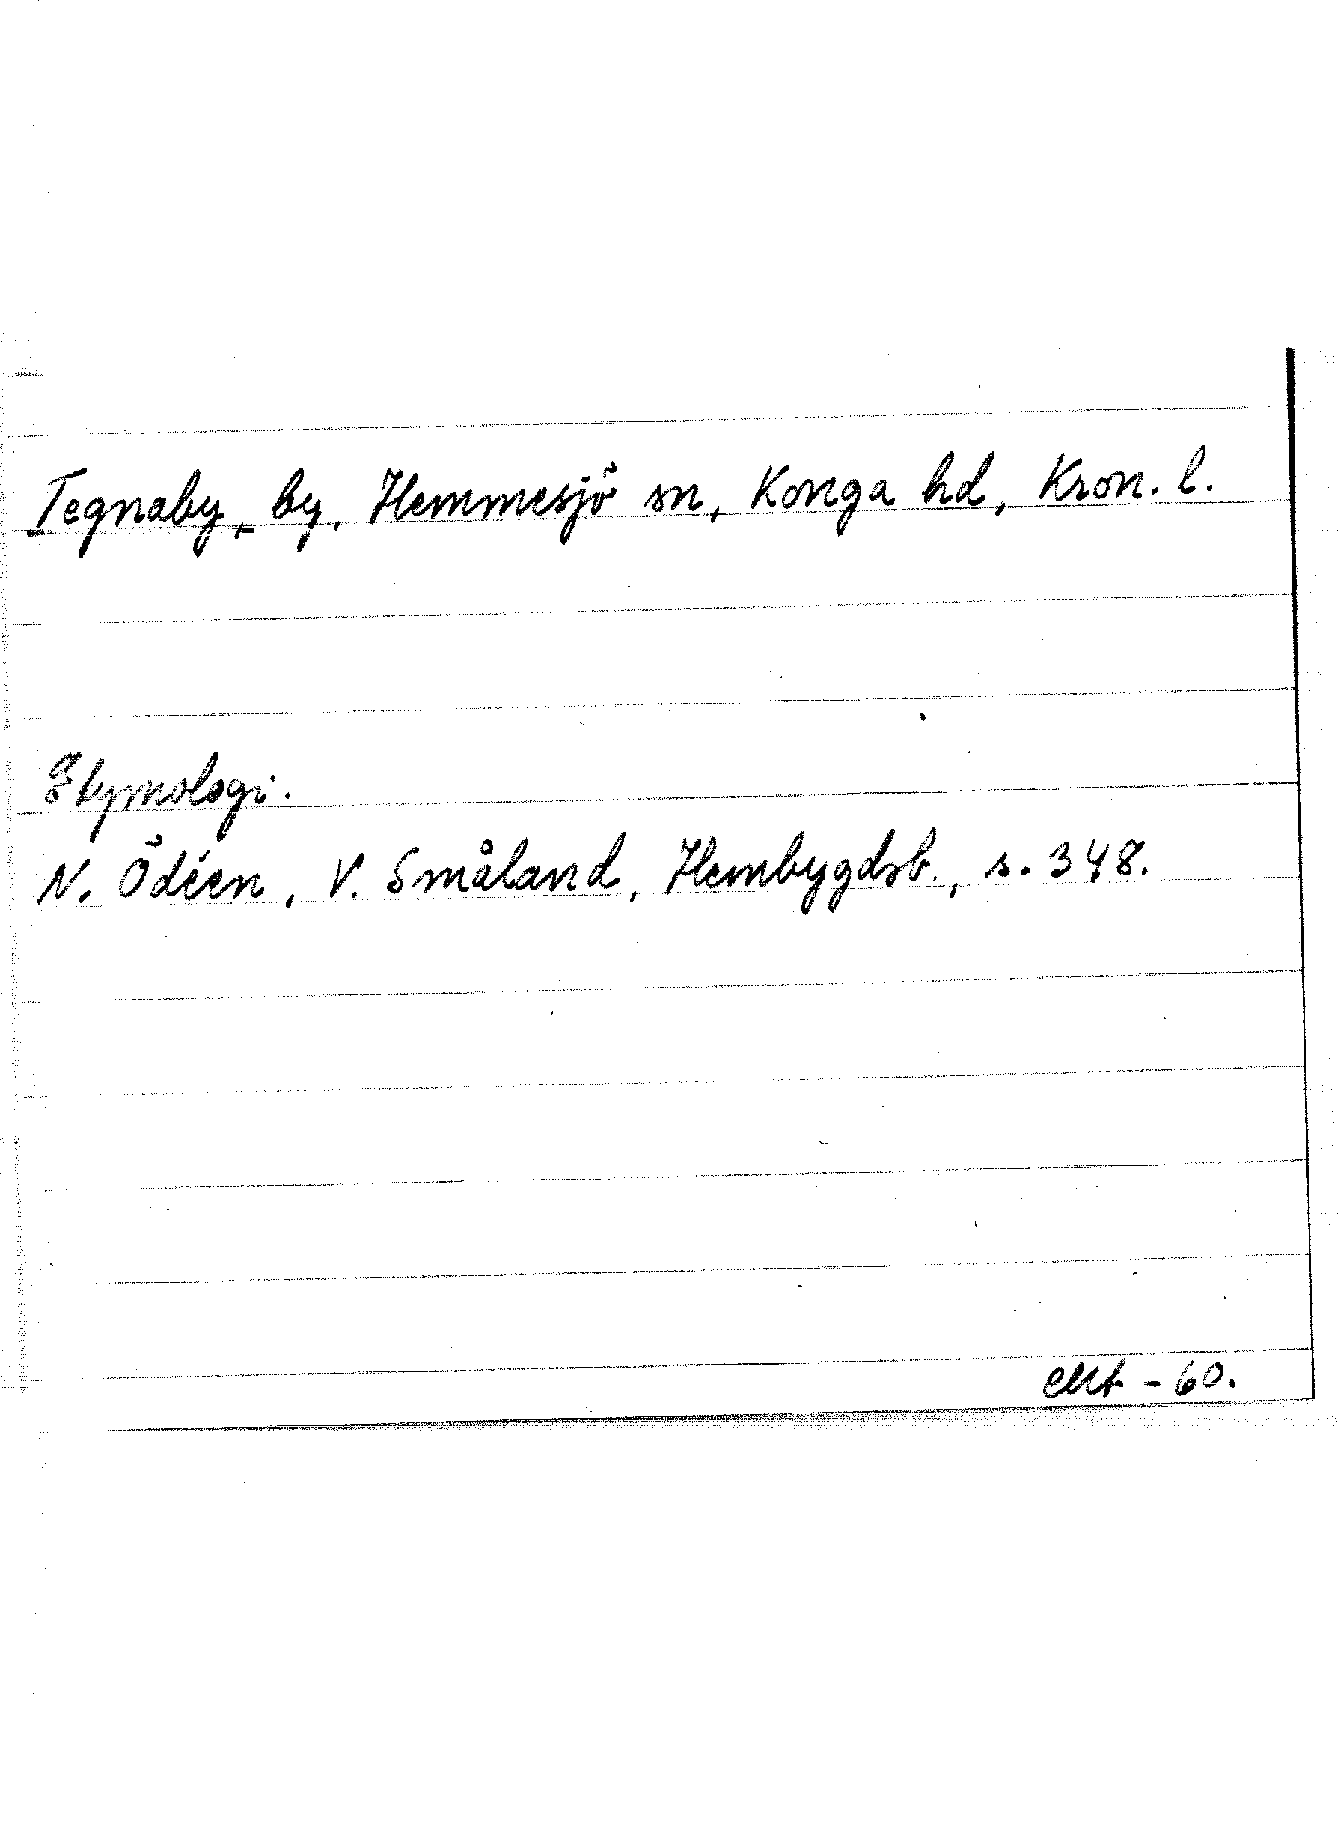 Tegnaby, by, Hemmesjö sn, Konga hd, Kron. l.
Etymologi.
N. Ödéen, V. Småland, Hembygdsb., s. 348.
- 60.